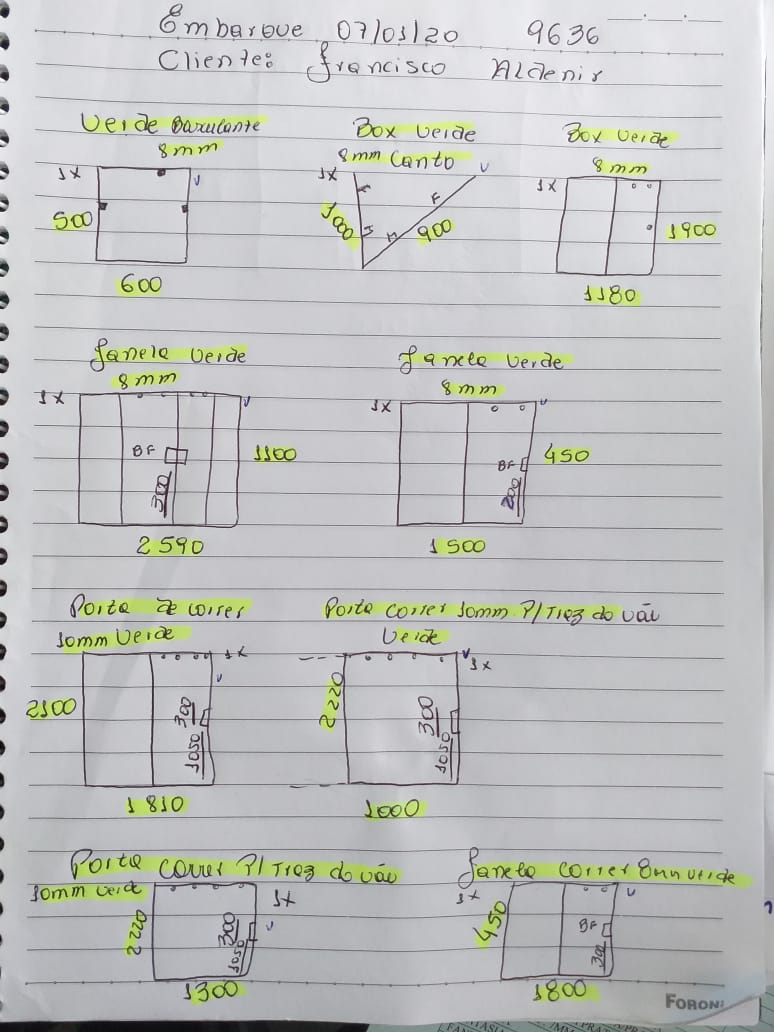 Embarque 07/01/20 9636
Cliente: Francisco Aldenir
Verde Basculante
8mm
1x
V
500
600
Box Verde
8mm Canto
1x
V
1000
F
F
900
Box Verde
8 mm
1x
1900
1180
Janela Verde
8mm
1x
V
BF
300
1100
2590
Janela Verde
8 mm
1x
V
BF
200
450
1500
Porta de correr
10mm Verde
1x
V
2100
300
1050
1810
Porta correr 10mm P/Traz do vão
Verde
V
1x
2220
300
1050
1000
Porta correr P/Traz do vão
10mm verde
1x
V
2220
300
1050
1300
Janela correr 8mm verde
1x
V
450
BF
300
1800
FORONI